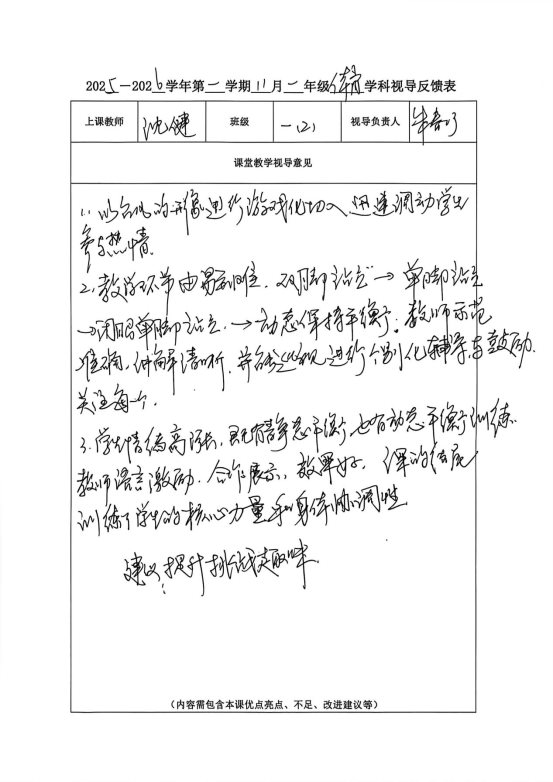 2025—2026学年第一学期11月一年级体育学科视导反馈表
上课教师 沈健 班级 一(2) 视导负责人 牛
课堂教学视导意见
1. 以 的形象进行游戏化切入 迅速调动学生
参与热情.
2. 教学环节由易到难. 双脚站立 → 单脚站立
→闭眼单脚站立. → 动态保持平衡. 教师示范
准确, 讲解清晰, 并能巡视 进行个别化辅导与鼓励.
关注每个.
3. 学生情绪高涨, 既有静态平衡 也有动态平衡训练.
教师语言激励. 合作展示, 效果好. 课的结尾
训练了学生的核心力量和身体协调性
建议: 提升挑战
(内容需包含本课优点亮点、不足、改进建议等)